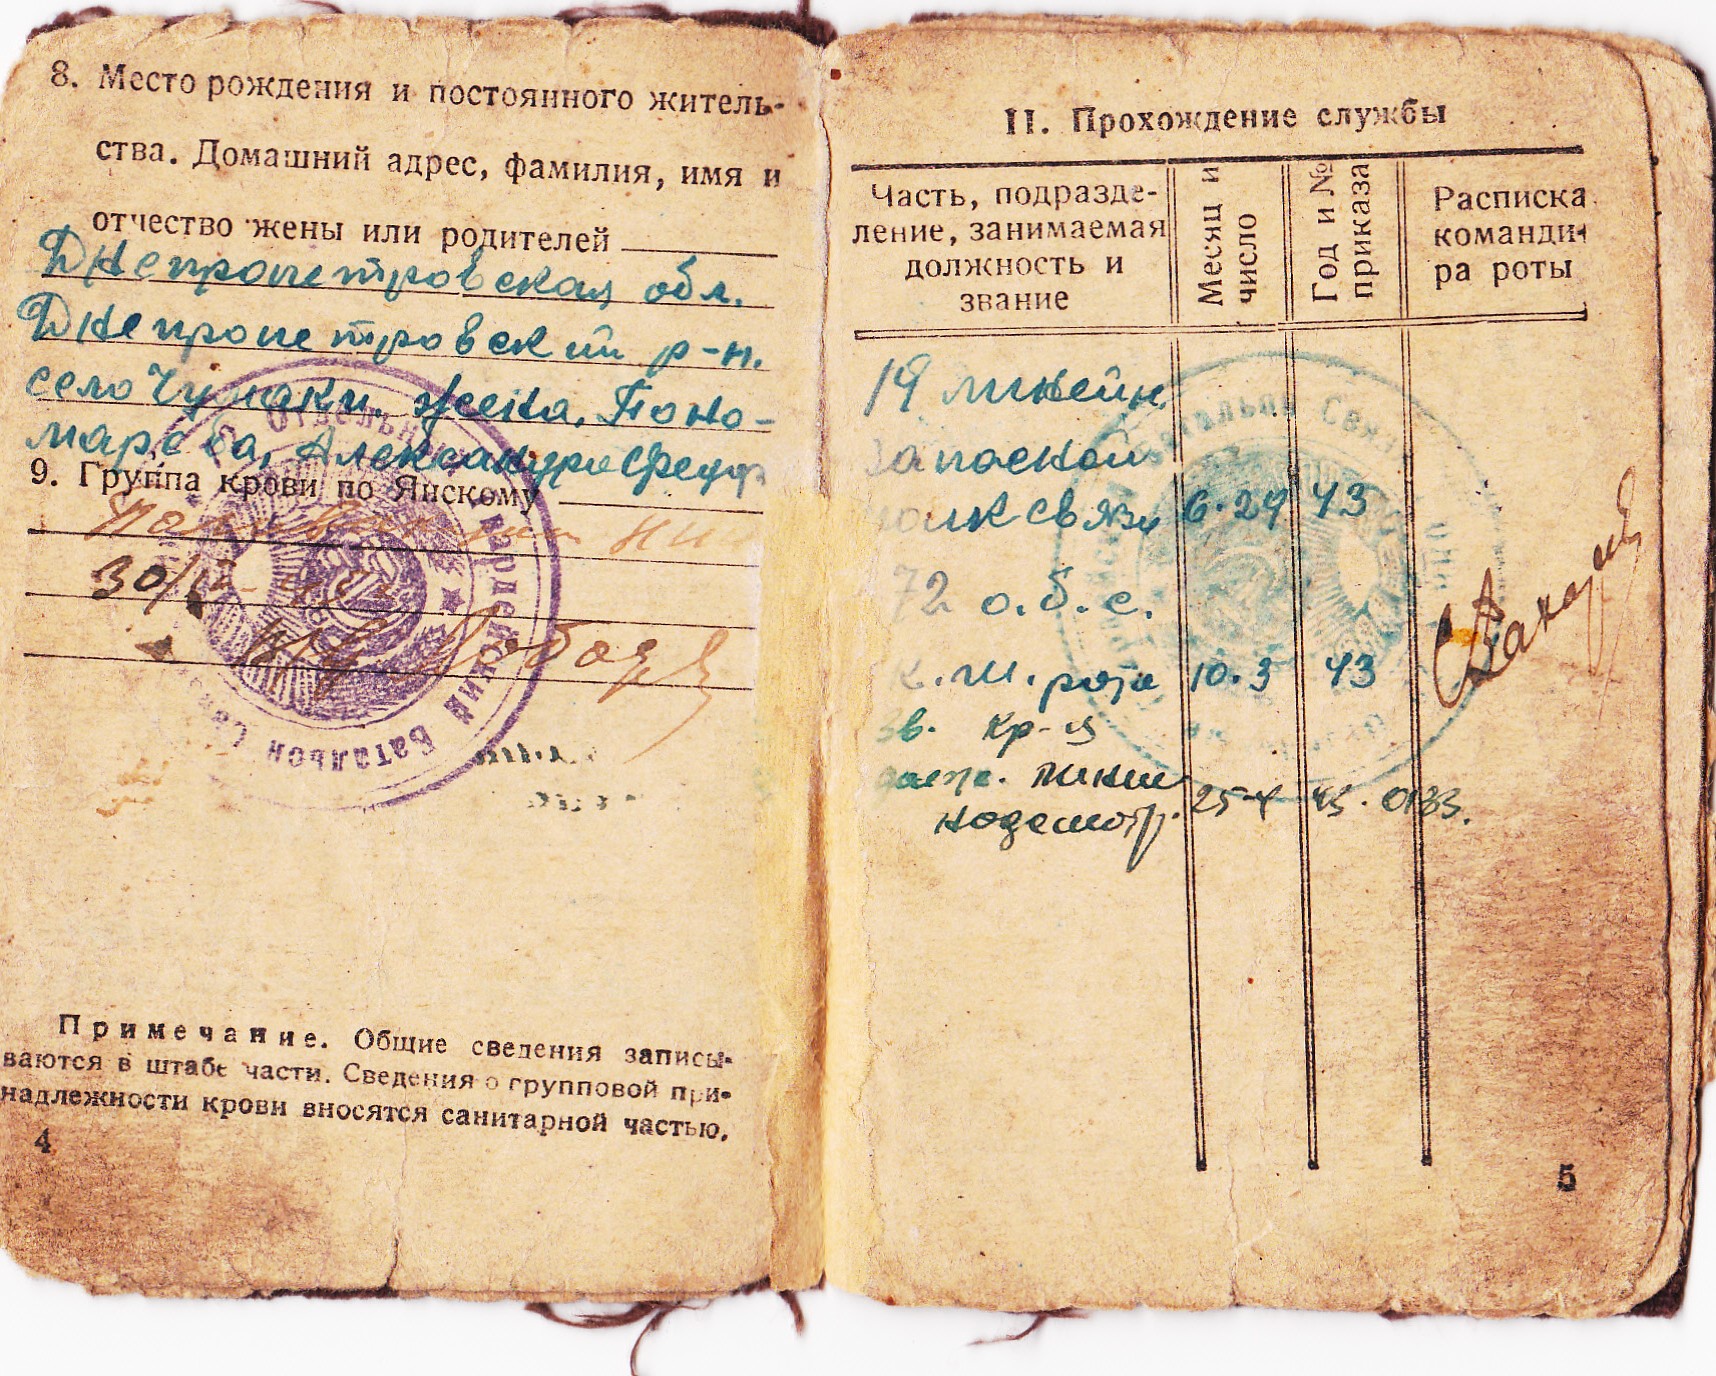 8. Место рождения и постоянного житель-
ства. Домашний адрес, фамилия, имя и
отчество жены или родителей
Днепропетровская обл.
Днепропетровский р-н.
село Чумаки. жена. Поно-
марева, Александра Федор
9. Группа крови по Янскому
30/
Отдельный
Гвардейский Батальон Связи
Примечание. Общие сведения записы-
ваются в штабе части. Сведения о групповой при-
надлежности крови вносятся санитарной частью.
4
II. Прохождение службы
Часть, подразде-
ление, занимаемая
должность и
звание
Месяц и
число
Год и №
приказа
Расписка
команди-
ра роты
19 линейн.
запасной
полк связи 6.29 43
72 о.б.с.
к.ш. рота 10.3 43
зв. кр-ц
линии
надсмотр. 25-4 45. 0133.
Батальон Связи
5